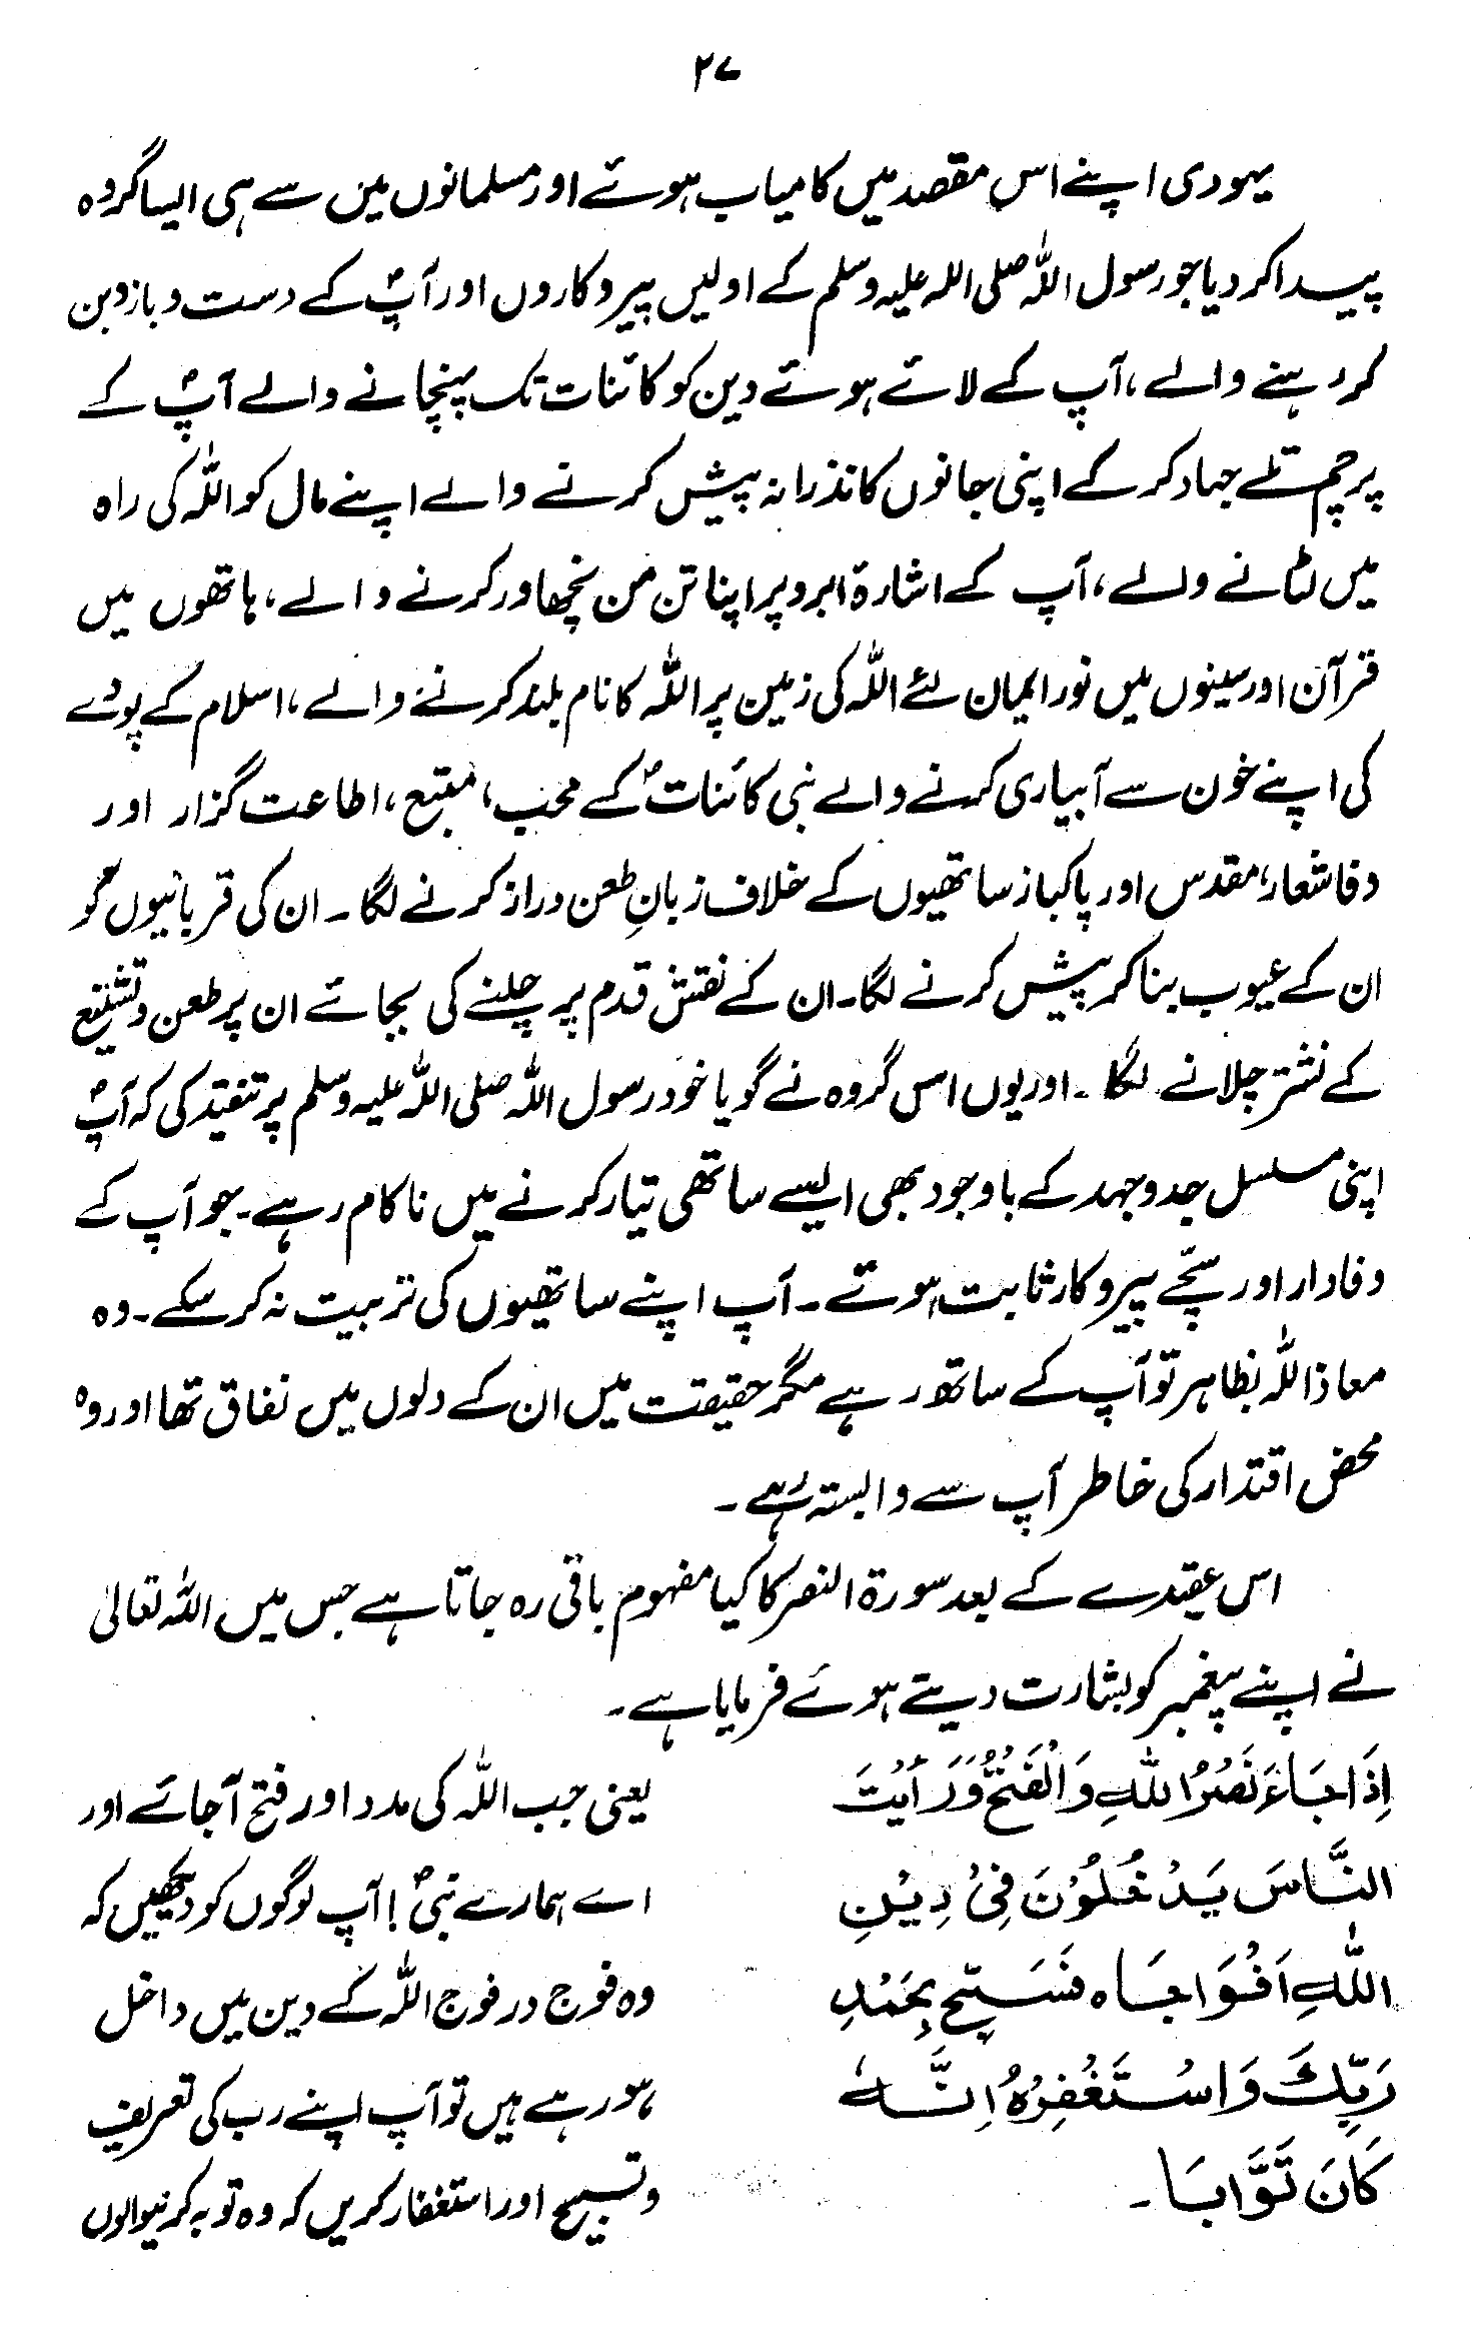 ۲۷
یہودی اپنے اس مقصد میں کامیاب ہوئے اور مسلمانوں میں سے ہی ایسا گروہ
پیدا کر دیا جو رسول اللہ صلی اللہ علیہ وسلم کے اولیں پیروکاروں اور آپؐ کے دست و بازو بن
کر رہنے والے ، آپ کے لائے ہوئے دین کو کائنات تک پہنچانے والے آپؐ کے
پرچم تلے جہاد کر کے اپنی جانوں کا نذرانہ پیش کرنے والے اپنے مال کو اللہ کی راہ
میں لٹانے والے ، آپ کے اشارۂ ابرو پر اپنا تن من نچھاور کرنے والے ، ہاتھوں میں
قرآن اور سینوں میں نور ایمان لئے اللہ کی زمین پر اللہ کا نام بلند کرنے والے ، اسلام کے پودے
کی اپنے خون سے آبیاری کرنے والے نبی کائناتؐ کے محب ، متبع ، اطاعت گزار اور
وفا شعار، مقدس اور پاکباز ساتھیوں کے خلاف زبانِ طعن دراز کرنے لگا ۔ ان کی قربانیوں کو
ان کے عیوب بنا کر پیش کرنے لگا ۔ ان کے نقش قدم پر چلنے کی بجائے ان پر طعن و تشنیع
کے نشتر چلانے لگا ۔ اور یوں اس گروہ نے گویا خود رسول اللہ صلی اللہ علیہ وسلم پر تنقید کی کہ آپؐ
اپنی مسلسل جدوجہد کے باوجود بھی ایسے ساتھی تیار کرنے میں ناکام رہے ۔ جو آپ کے
وفادار اور سچّے پیروکار ثابت ہوتے ۔ آپ اپنے ساتھیوں کی تربیت نہ کر سکے ۔ وہ
معاذ اللہ بظاہر تو آپ کے ساتھ رہے مگر حقیقت میں ان کے دلوں میں نفاق تھا اور وہ
محض اقتدار کی خاطر آپ سے وابستہ رہے ۔
اس عقیدے کے بعد سورۃ النصر کا کیا مفہوم باقی رہ جاتا ہے جس میں اللہ تعالیٰ
نے اپنے پیغمبر کو بشارت دیتے ہوئے فرمایا ہے ۔
اِذَا جَاءَ نَصْرُ اللّٰهِ وَالْفَتْحُ وَرَاَیْتَ
النَّاسَ یَدْخُلُوْنَ فِیْ دِیْنِ
اللّٰهِ اَفْوَاجًا ہ فَسَبِّحْ بِحَمْدِ
رَبِّكَ وَاسْتَغْفِرْهُ اِنَّهٗ
كَانَ تَوَّابًا ۔
یعنی جب اللہ کی مدد اور فتح آ جائے اور
اے ہمارے نبیؐ ! آپ لوگوں کو دیکھیں کہ
وہ فوج در فوج اللہ کے دین میں داخل
ہو رہے ہیں تو آپ اپنے رب کی تعریف
و تسبیح اور استغفار کریں کہ وہ توبہ کرنیوالوں